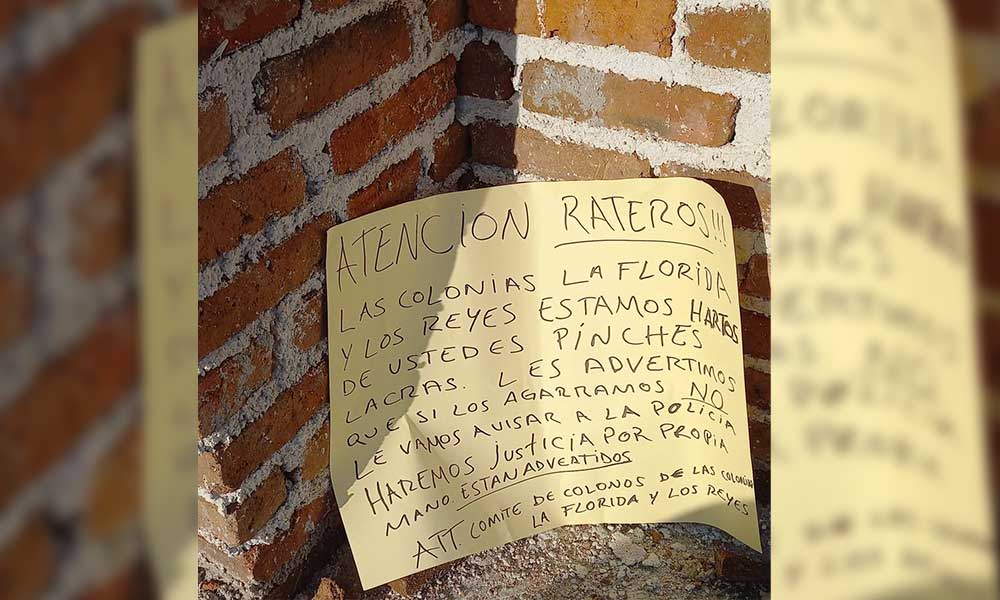 ATENCION RATEROS!!!
LAS COLONIAS LA FLORIDA
Y LOS REYES ESTAMOS HARTOS
DE USTEDES PINCHES
LACRAS. LES ADVERTIMOS
QUE SI LOS AGARRAMOS NO
LE VAMOS AVISAR A LA POLICIA
HAREMOS JUSTICIA POR PROPIA
MANO. ESTAN ADVERTIDOS
ATT COMITE DE COLONOS DE LAS COLONIAS
LA FLORIDA Y LOS REYES